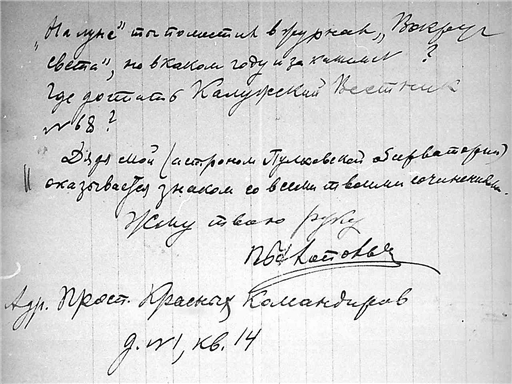 „На луне" ты поместил в журнал „Вокруг
света", но в каком году и за каким ?
Где достать Калужский Вестник
№ 68 ?
Дядя мой (астроном Пулковской обсерватории)
оказывается знаком со всеми твоими сочинениями.
Жму твою руку
Адр. Прост. Красных Командиров
д. №1, кв. 14